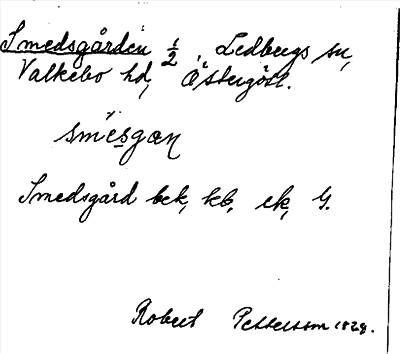 Smedsgården ½, Ledbergs sn,
Valkebo hd, Östergötl.
smesgaṇ
Smedsgård bek, kb, ek, G.
Robert Pettersson 1929.